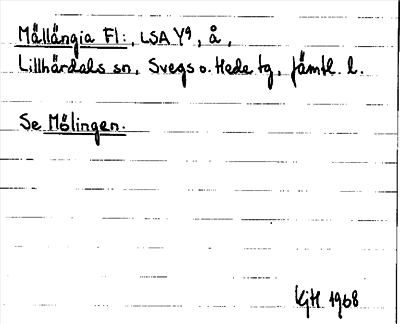 Mållängia Fl:, LSA Y9, å,
Lillhärdals sn, Svegs o. Hede tg, Jämtl. l.
Se Mölingen.
KjH 1968